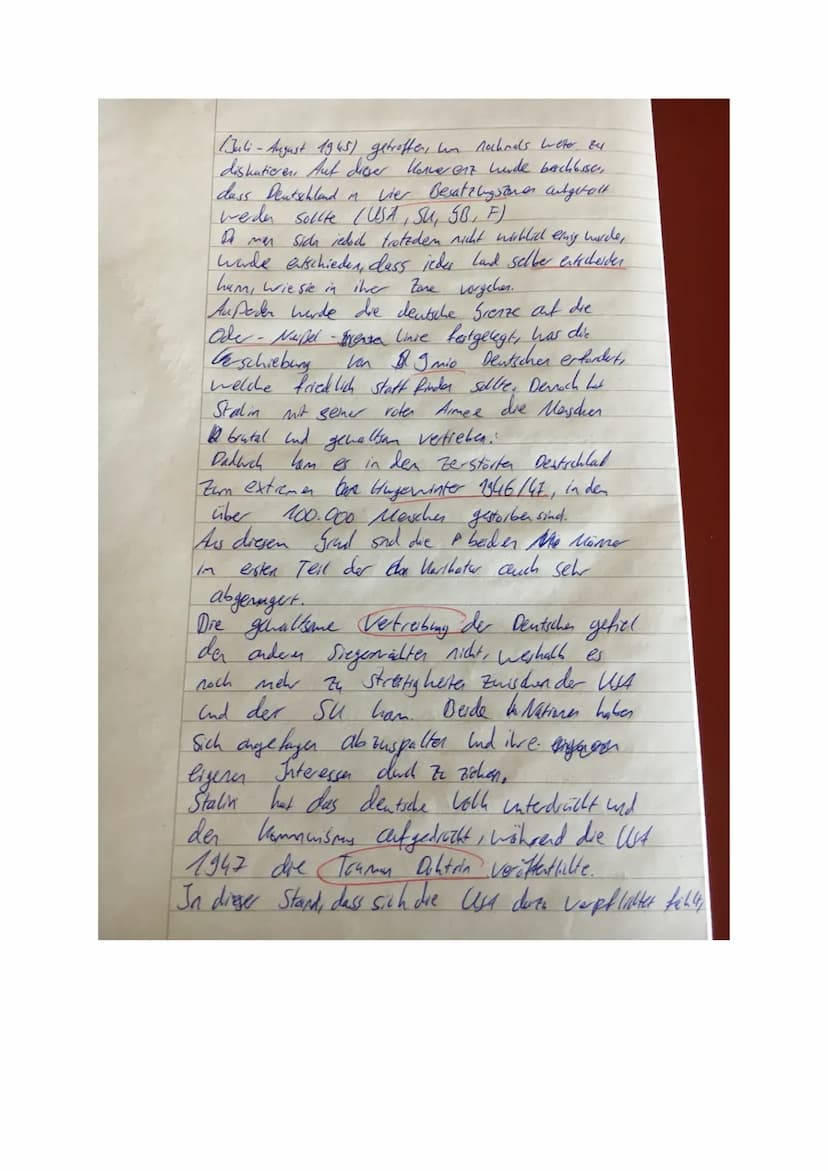 (Juli-August 1945) getroffen, um nochmals weiter zu
diskutieren. Auf dieser Konverenz wurde beschlossen,
dass Deutschland in vier Besatzungszonen aufgeteilt
werden sollte (USA, SU, GB, F)
Da man sich jedoch trotzdem nicht wirklich einig wurde,
wurde entschieden, dass jedes Land selber entscheiden
kann, wie sie in ihrer Zone vorgehen.
Außedem wurde die deutsche Grenze auf die
Oder-Neißel - Linie festgelegt, was die
Verschiebung von 9 mio Deutschen erfordert,
welche friedlich statt finden sollte. Dennoch hat
Stalin mit seiner roten Armee die Menschen
brutal und gewaltsam vertrieben.
Dadurch kam es in den zerstörten Deutschland
zum extremen Hungerwinter 1946/47, in den
über 100.000 Menschen gestorben sind.
Aus diesen Grund sind die beiden Männer
im ersten Teil der Karikatur auch sehr
abgemagert.
Die gewaltsame Vertreibung der Deutschen gefiel
den anderen Siegermächten nicht, weshalb es
noch mehr zu Streitigkeiten zwischen der USA
und der SU kam. Beide Nationen haben
sich angefangen abzuspalten und ihre
eigenen Interessen durch zu ziehen.
Stalin hat das deutsche Volk unterdrückt und
den Kommunismus aufgedrückt, während die USA
1947 die Truman Doktrin veröffentlichte.
In dieser Stand, dass sich die USA dazu verpflichtet fühlt,